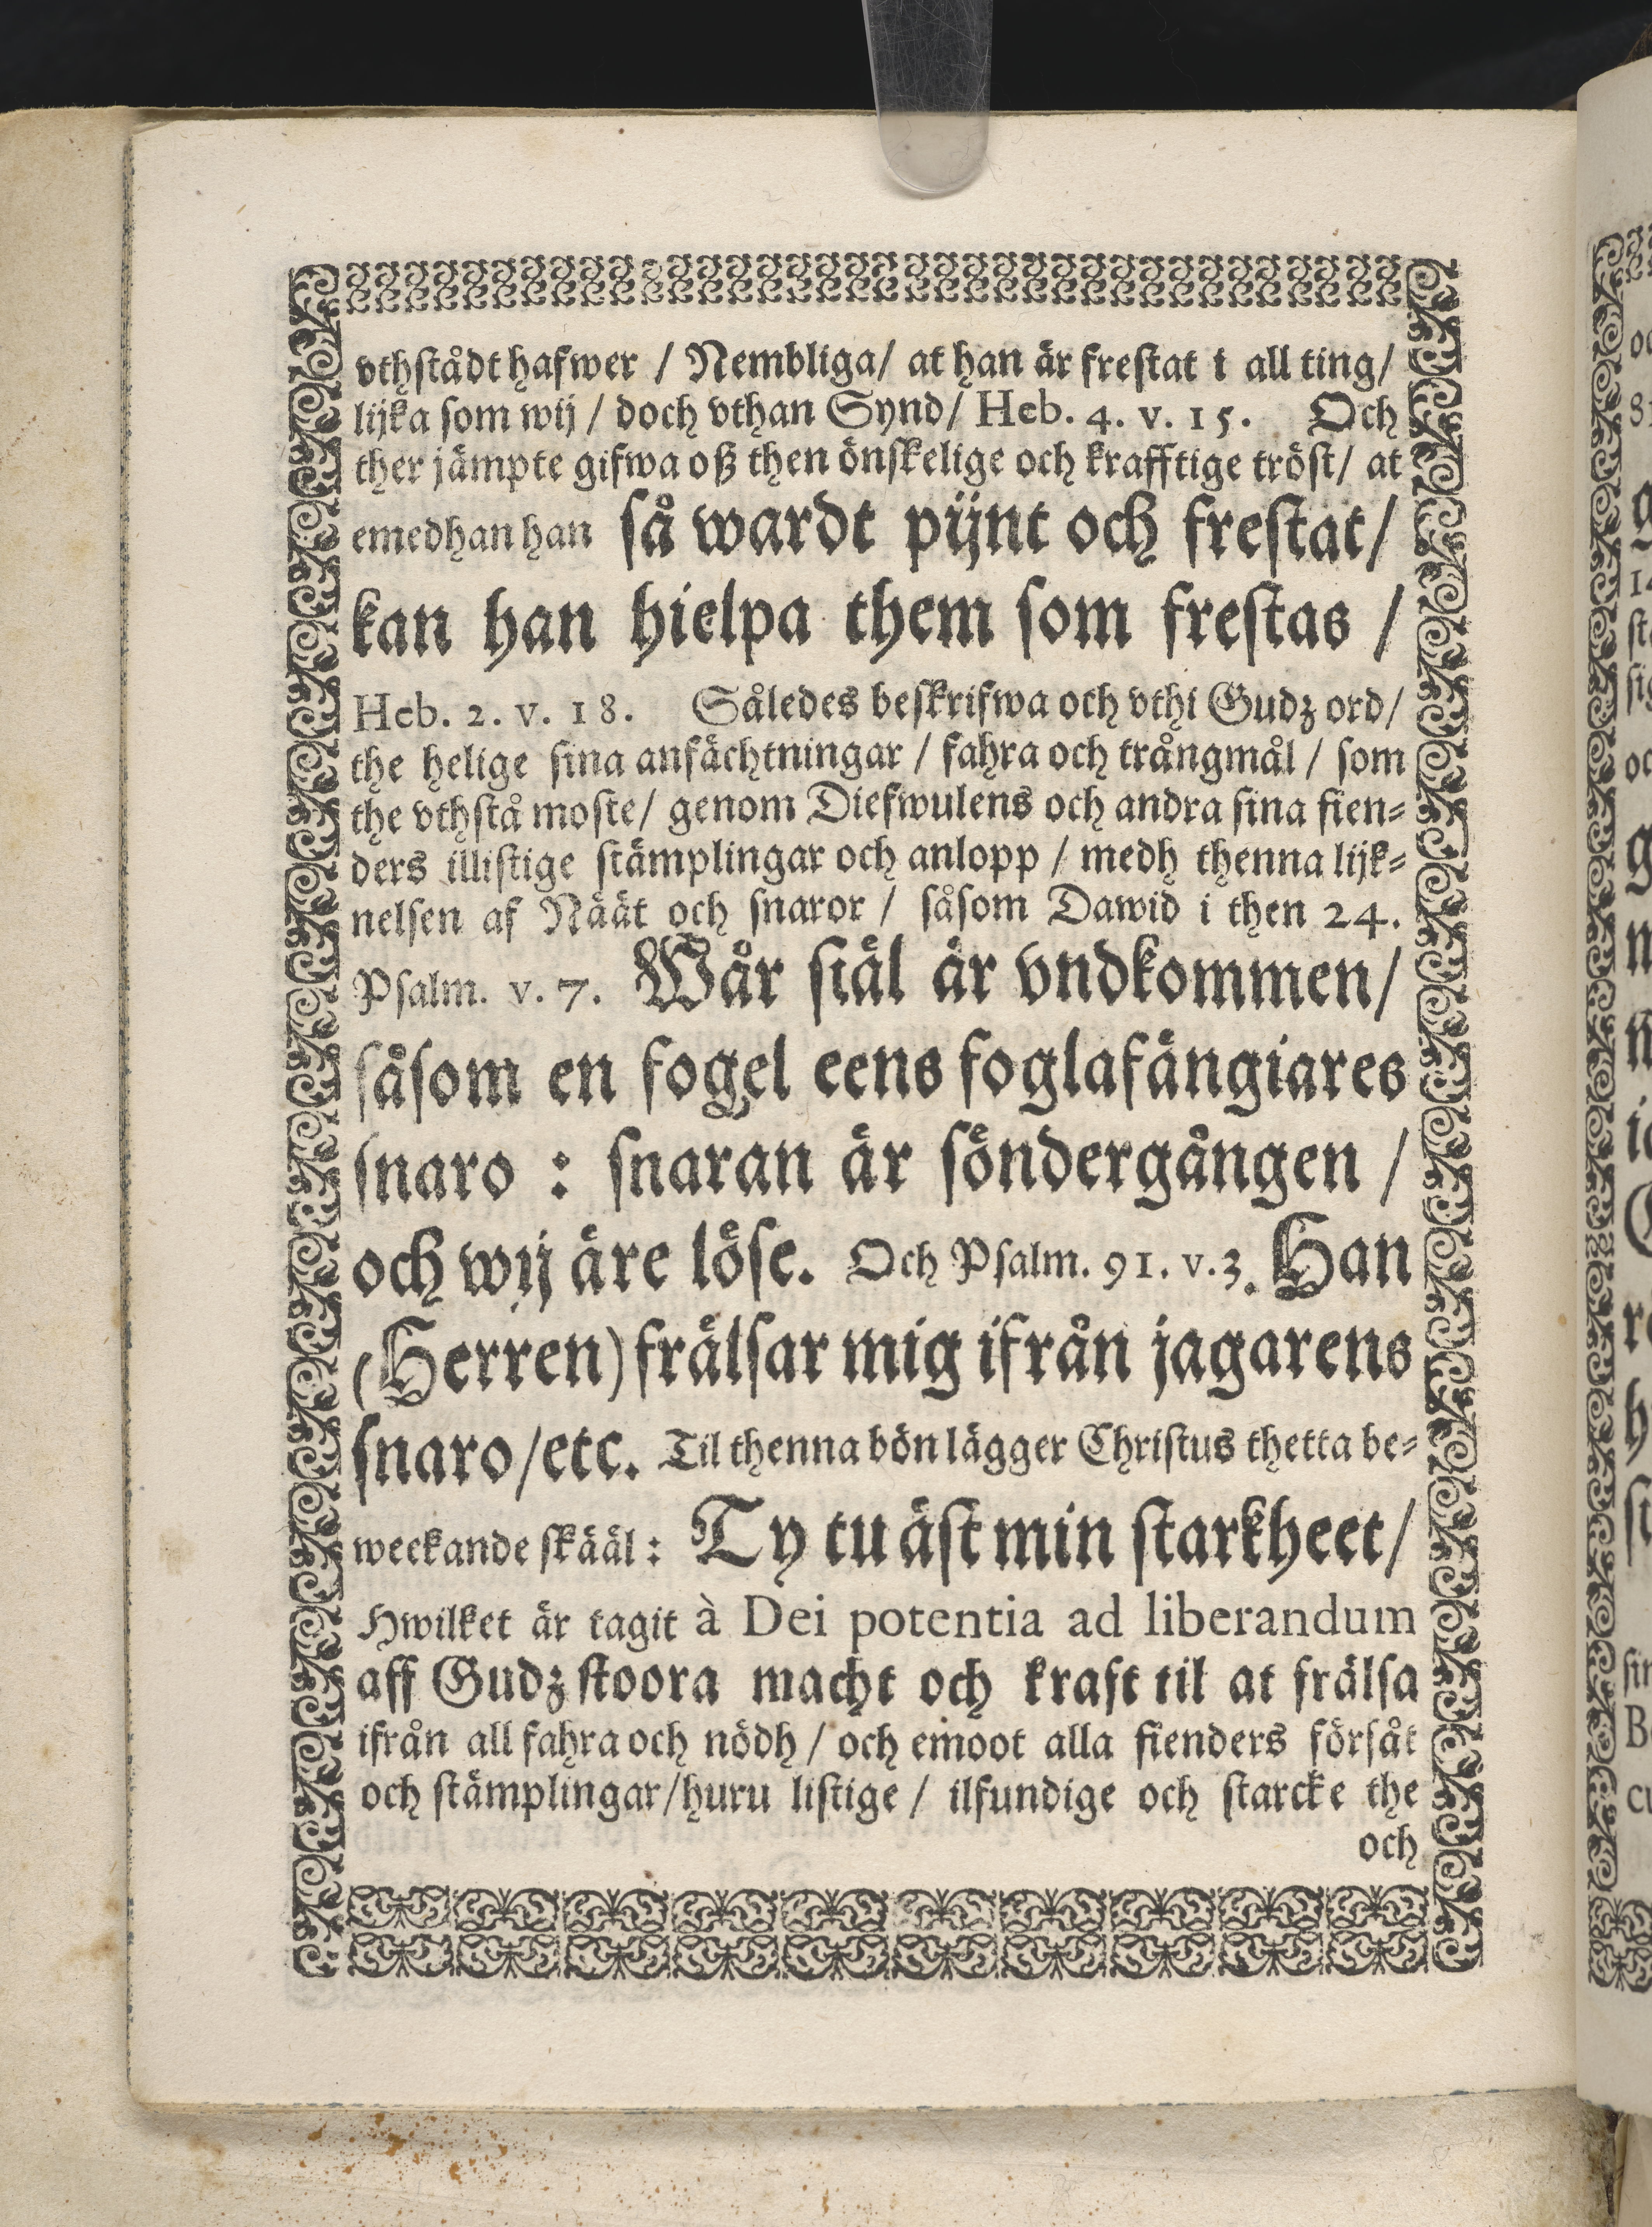 vthstådt hafwer / Nembliga/ at han är frestat i all ting/
lijka som wij / doch vthan Synd/ Heb. 4. v. 15. Och
ther jämpte gifwa oß then önskelige och krafftige tröst/ at
emedhan han så wardt pijnt och frestat/
kan han hielpa them som frestas /
Heb. 2. v. 18. Således beskrifwa och vthi Gudz ord/
the helige sina anfächtningar / fahra och trångmål / som
the vthstå moste/ genom Diefwulens och andra sina fien-
ders illistige stämplingar och anlopp / medh thenna lijk-
nelsen af Näät och snaror / såsom Dawid i then 24.
Psalm. v. 7. Wår siäl är vndkommen/
såsom en fogel eens foglafängiares
snaro : snaran är söndergången /
och wij äre löse. Och Psalm. 91. v. 3. Han
(Herren) frälsar mig ifrån jagarens
snaro/etc. Til thenna bön lägger Christus thetta be-
weckande skääl : Ty tu äst min starkheet/
Hwilket är tagit à Dei potentia ad liberandum
aff Gudz stoora macht och kraft til at frälsa
ifrån all fahra och nödh / och emoot alla fienders försåt
och stämplingar/huru listige / ilfundige och starcke the
och